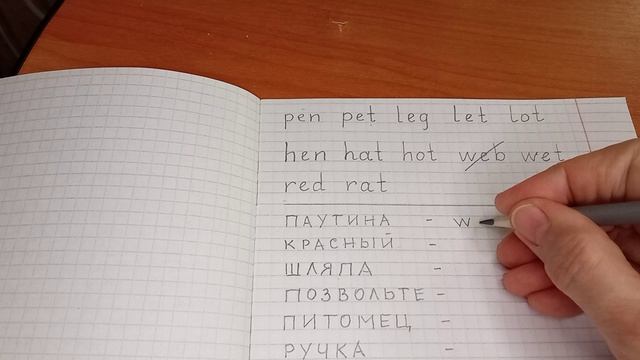 pen pet leg let lot
hen hat hot web wet
red rat
ПАУТИНА - w
КРАСНЫЙ -
ШЛЯПА -
ПОЗВОЛЬТЕ -
ПИТОМЕЦ -
РУЧКА -